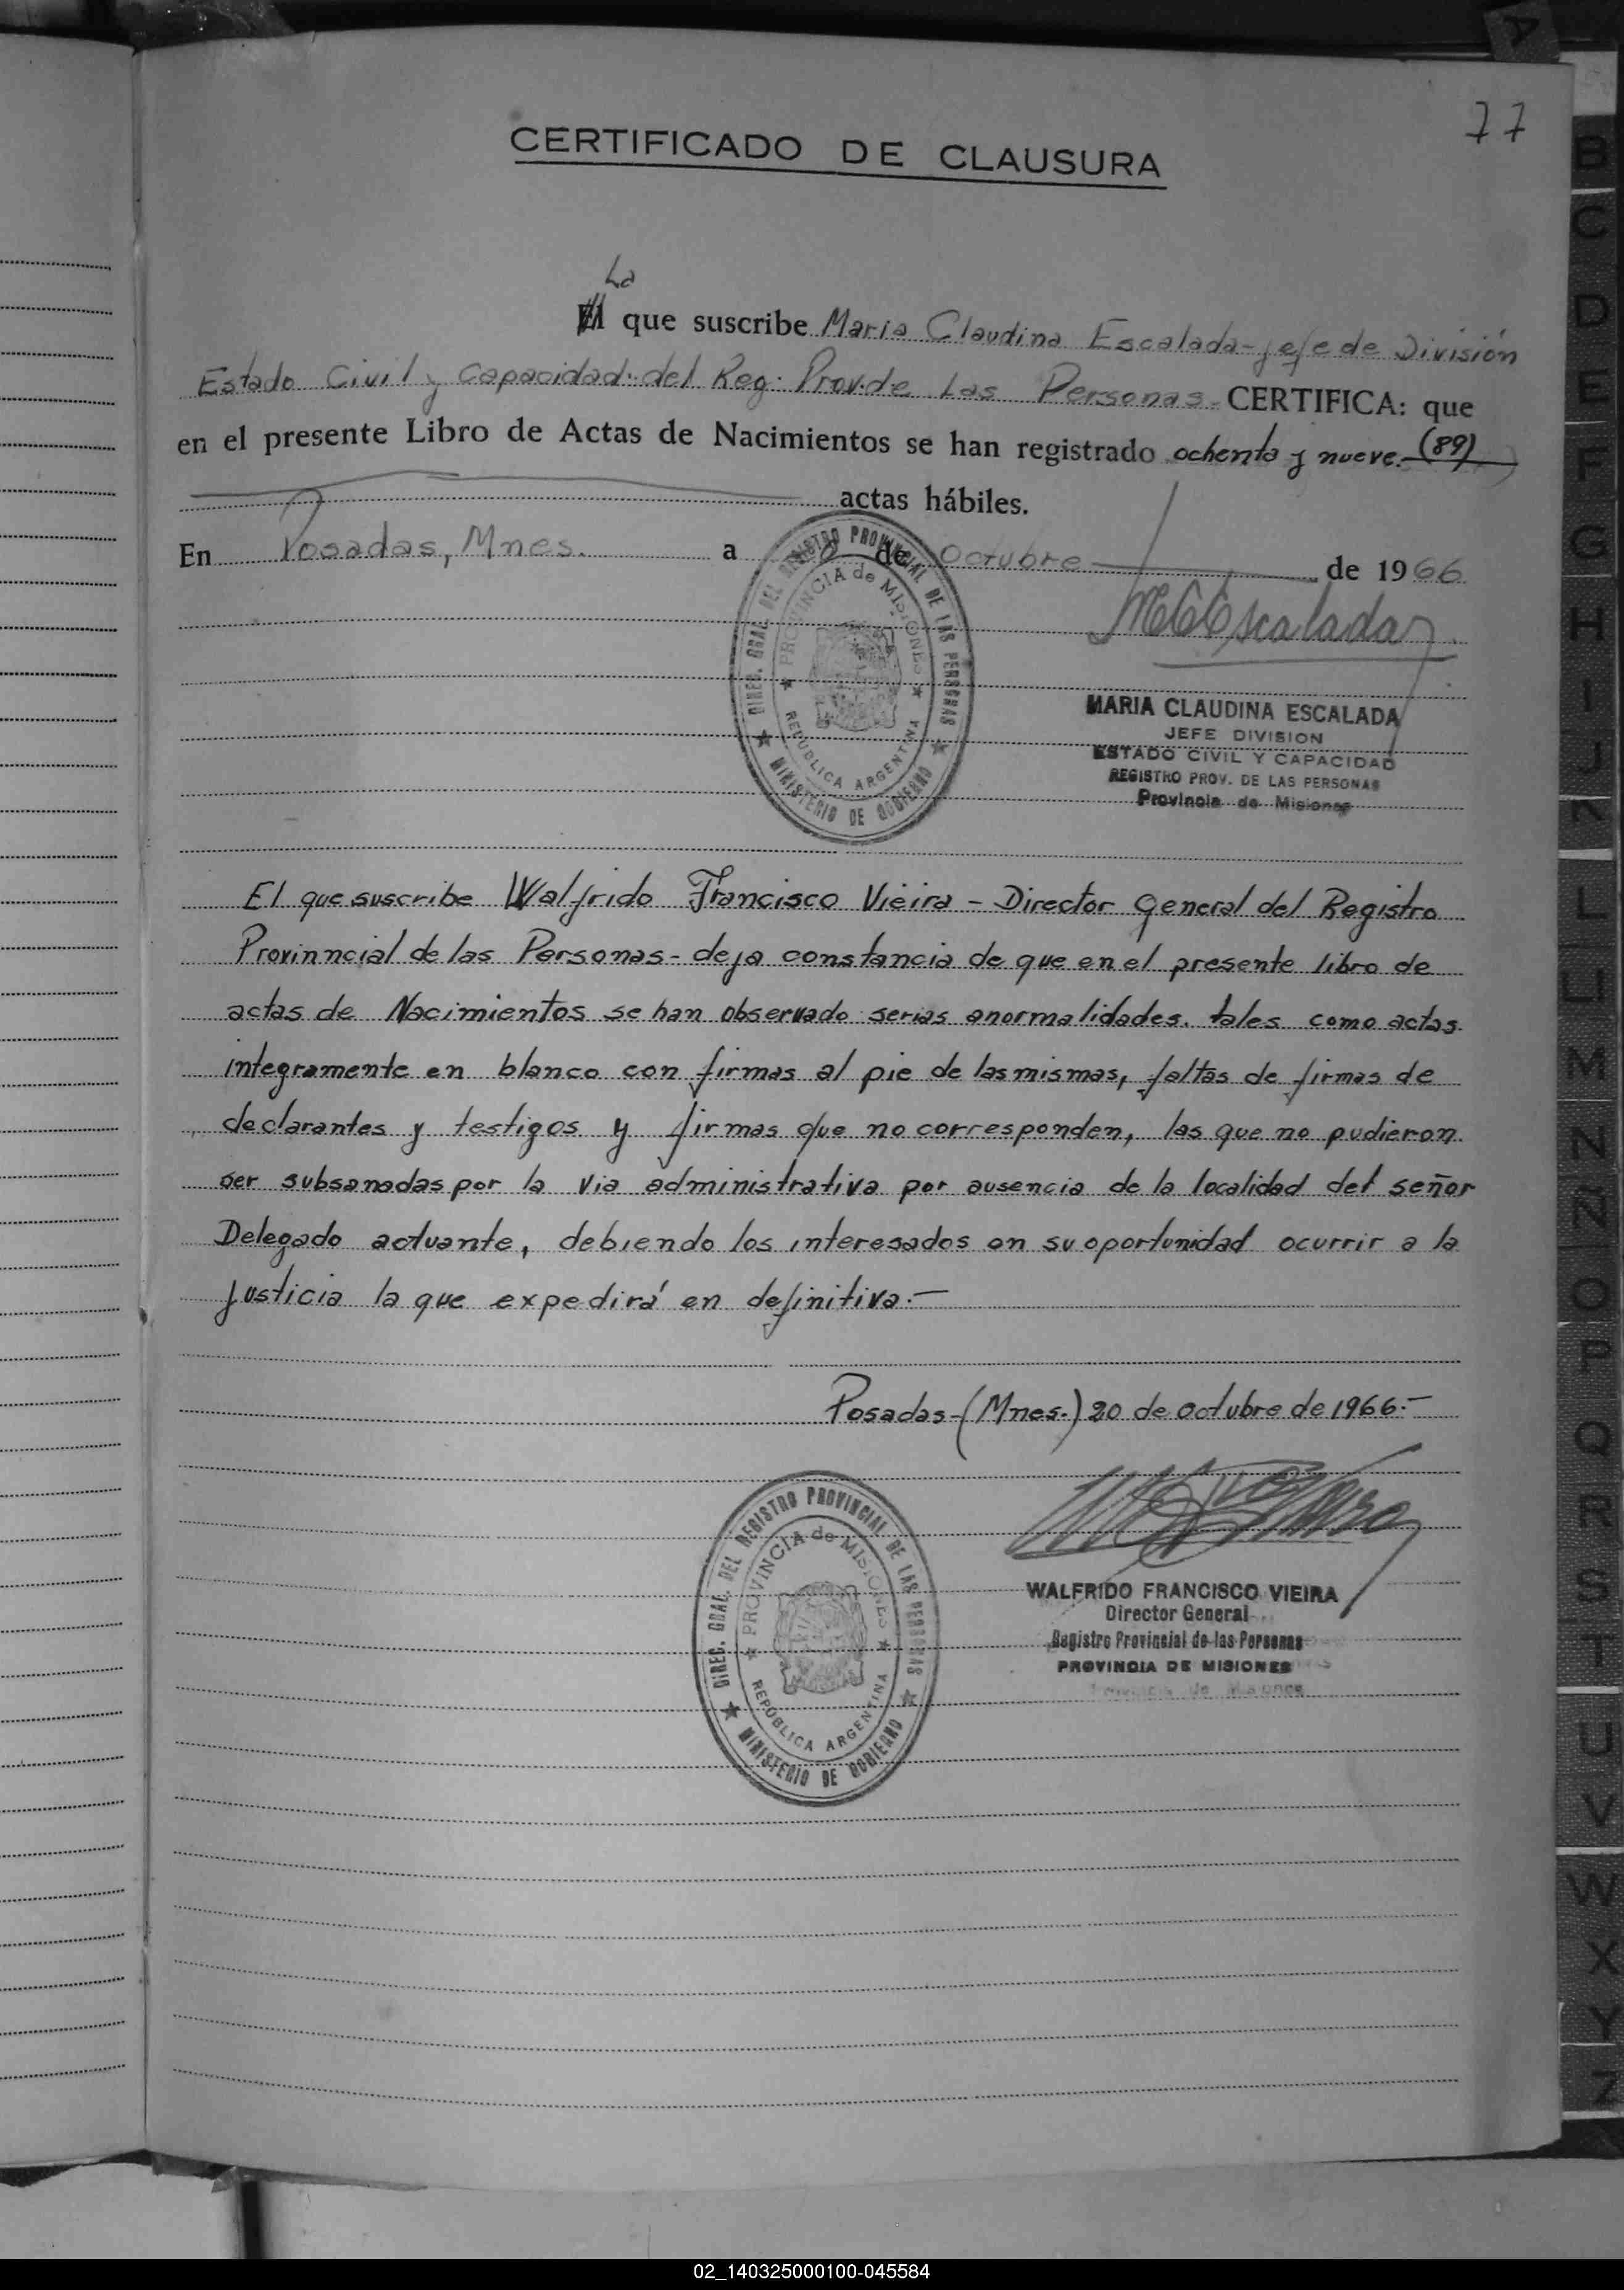 77
CERTIFICADO DE CLAUSURA
La
El que suscribe Maria Claudina Escalada - Jefe de División
Estado Civil y Capacidad del Reg. Prov. de Las Personas - CERTIFICA: que
en el presente Libro de Actas de Nacimientos se han registrado ochenta y nueve.- (89)
actas hábiles.
En Posadas, Mnes. a de Octubre de 1966
MCEscalada
MARIA CLAUDINA ESCALADA
JEFE DIVISION
ESTADO CIVIL Y CAPACIDAD
REGISTRO PROV. DE LAS PERSONAS
Provincia de Misiones
DIREC. GRAL. DEL REGISTRO PROVINCIAL DE LAS PERSONAS
PROVINCIA de MISIONES
REPUBLICA ARGENTINA
MINISTERIO DE GOBIERNO
El que suscribe Walfrido Francisco Vieira - Director General del Registro
Provinncial de las Personas - deja constancia de que en el presente libro de
actas de Nacimientos se han observado serias anormalidades. tales como actas
integramente en blanco con firmas al pie de las mismas, faltas de firmas de
declarantes y testigos y firmas que no corresponden, las que no pudieron
ser subsanadas por la via administrativa por ausencia de la localidad del señor
Delegado actuante, debiendo los interesados en su oportunidad ocurrir a la
Justicia la que expedirá en definitiva.-
Posadas - (Mnes.) 20 de octubre de 1966.-
WALFRIDO FRANCISCO VIEIRA
Director General
Registro Provincial de las Personas
PROVINCIA DE MISIONES
DIREC. GRAL. DEL REGISTRO PROVINCIAL DE LAS PERSONAS
PROVINCIA de MISIONES
REPÚBLICA ARGENTINA
MINISTERIO DE GOBIERNO
A
B
C
D
E
F
G
H
I
J
K
L
LL
M
N
Ñ
O
P
Q
R
S
T
U
V
W
X
Y
Z
02_140325000100-045584